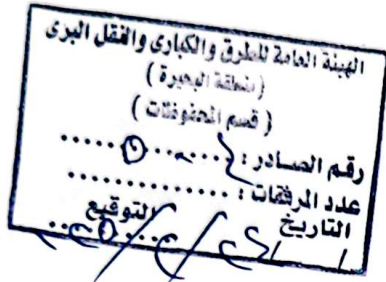 الهيئة العامة للطرق والكبارى والنقل البرى
( منطقة البحيرة )
( قسم المحفوظات )
رقم الصادر :
عدد المرفقات :
التاريخ التوقيع